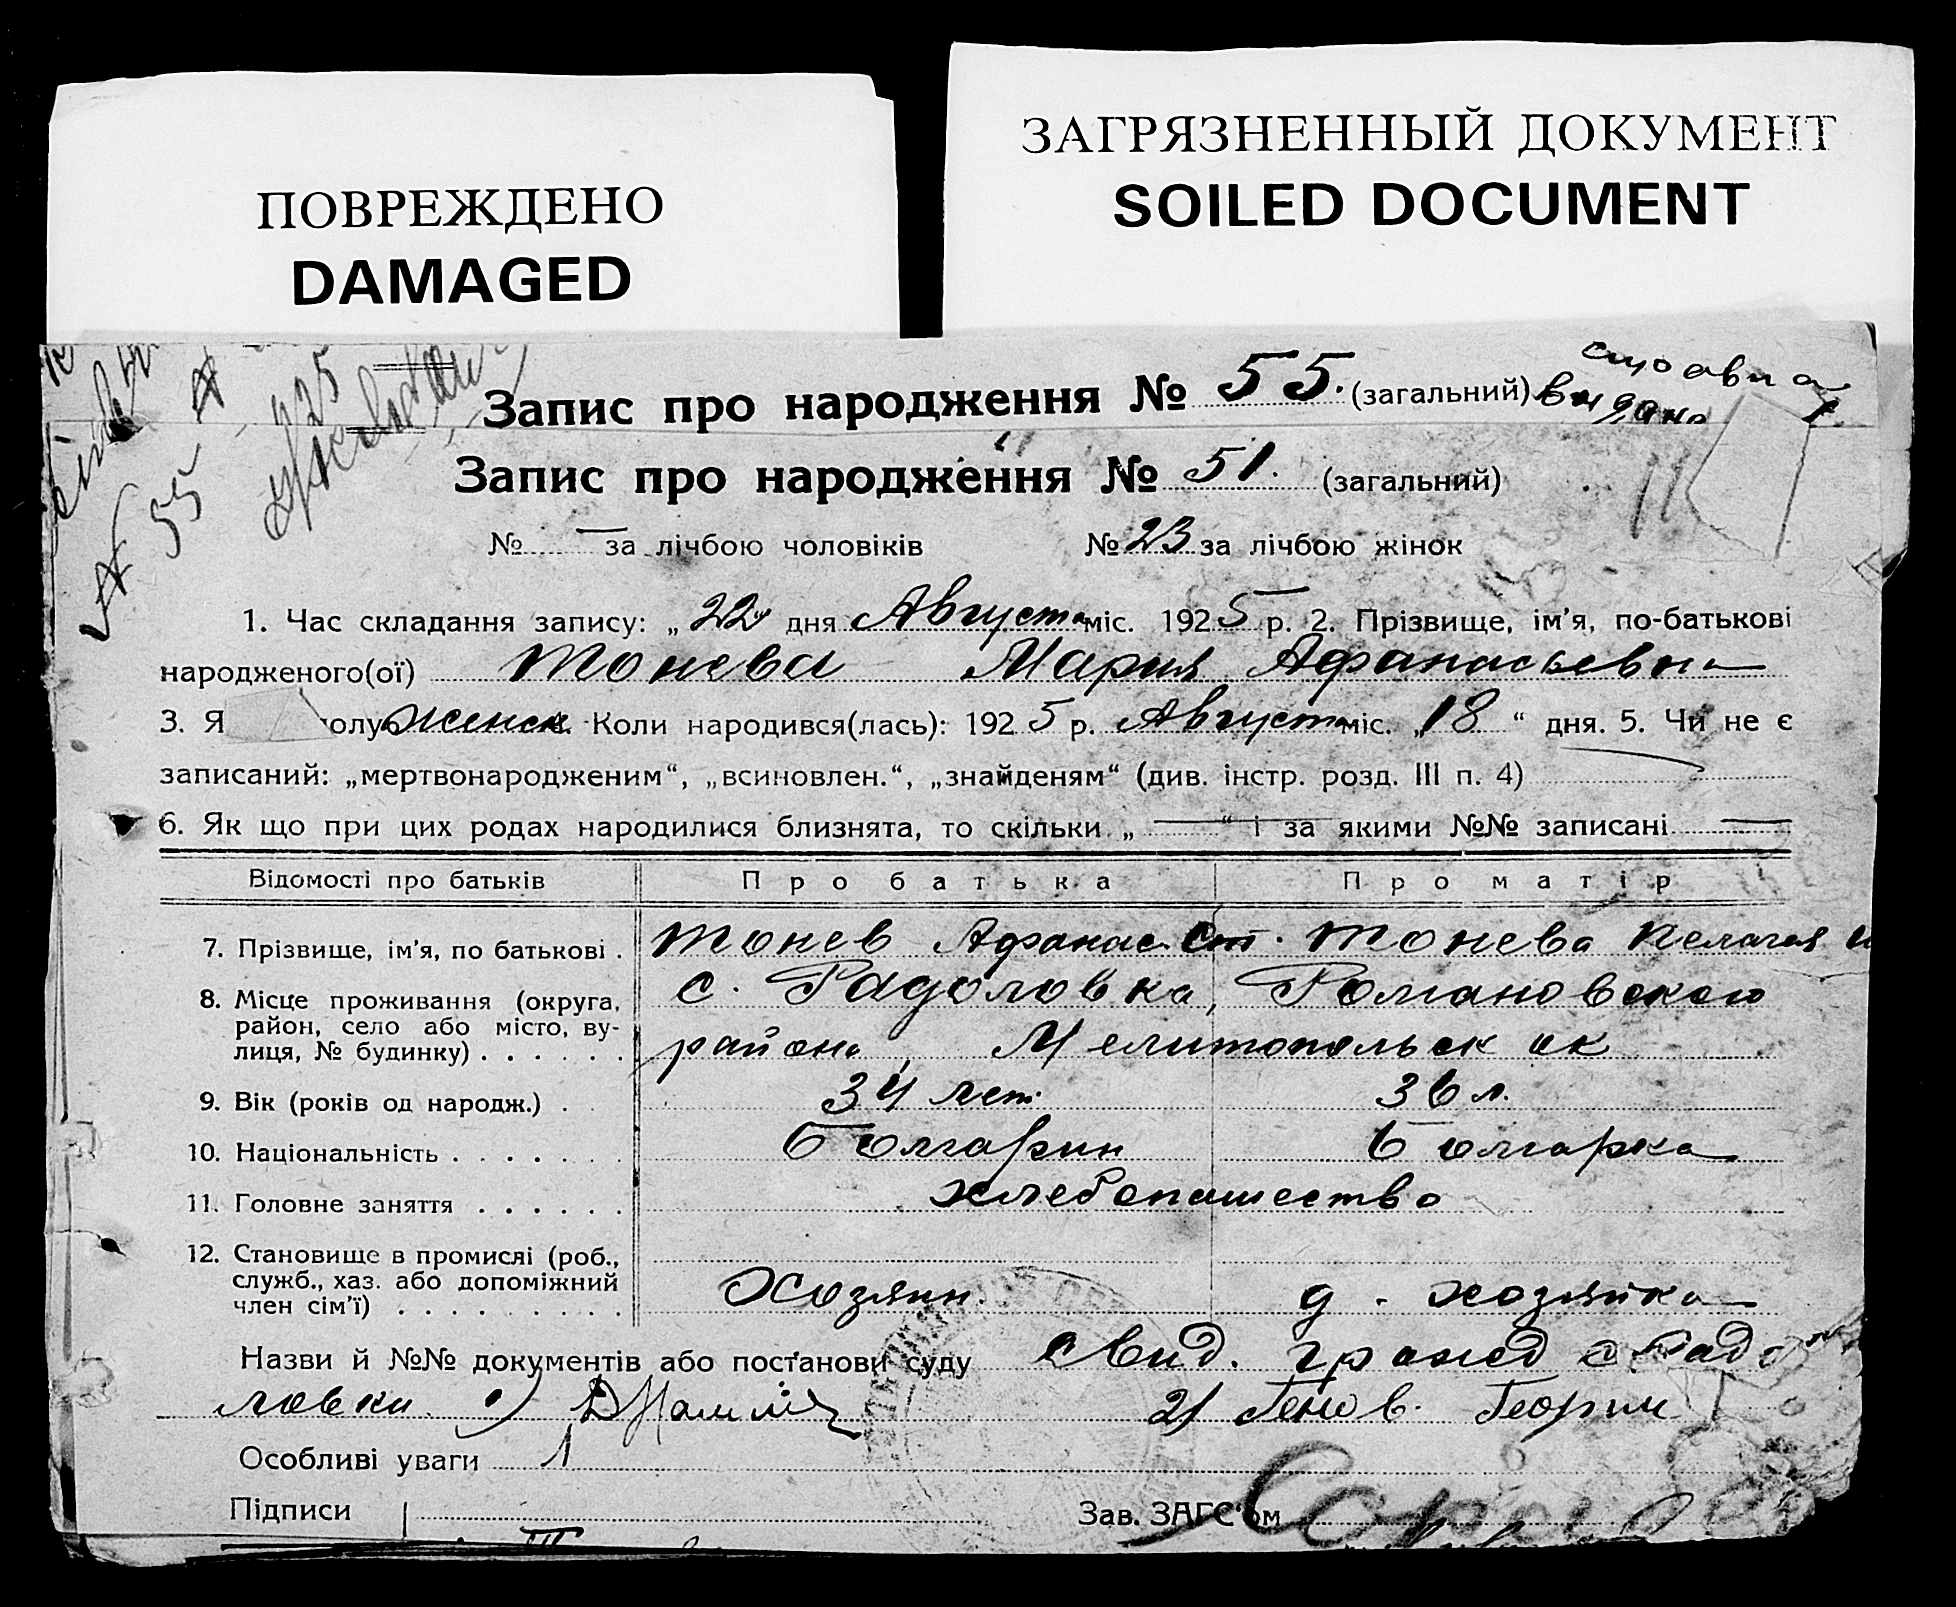 ПОВРЕЖДЕНО
DAMAGED
ЗАГРЯЗНЕННЫЙ ДОКУМЕНТ
SOILED DOCUMENT
Запис про народження № 55. (загальний)
№ 55
Запис про народження № 51. (загальний)
№ — за лічбою чоловіків № 23 за лічбою жінок
1. Час складання запису: „ 22 дня Августа міс. 1925 р. 2. Прізвище, ім'я, по-батькові
народженого(ої) Тонева Мария Афанасьевна
3. Я олу женск. Коли народився(лась): 1925 р. Августа міс. „18“ дня. 5. Чи не є
записаний: „мертвонародженим“, „всиновлен.“, „знайденям“ (див. інстр. розд. III п. 4)
6. Як що при цих родах народилися близнята, то скільки „ — “ і за якими №№ записані —
Відомості про батьків Про батька Про матір
7. Прізвище, ім'я, по батькові . Тонев Афанас. Ст. Тонева Пелагея
8. Місце проживання (округа, с. Радоловка, Романовского
район, село або місто, ву-
лиця, № будинку) . . . . . . района, Мелитопольск ок
9. Вік (років од народж.) . 34 лет. 36 л.
10. Національність . . . . . . . Болгарин Болгарка
11. Головне заняття . . . . . . хлебопашество
12. Становище в промислі (роб.,
служб., хаз. або допоміжний
член сім'ї) . . . . . . . . . Хозяин. д. хозяйка
Назви й №№ документів або постанови суду Свид. гражд с. Радо
ловки 1) 2) Генов. Георги
Особливі уваги
Підписи Зав. ЗАГС'ом